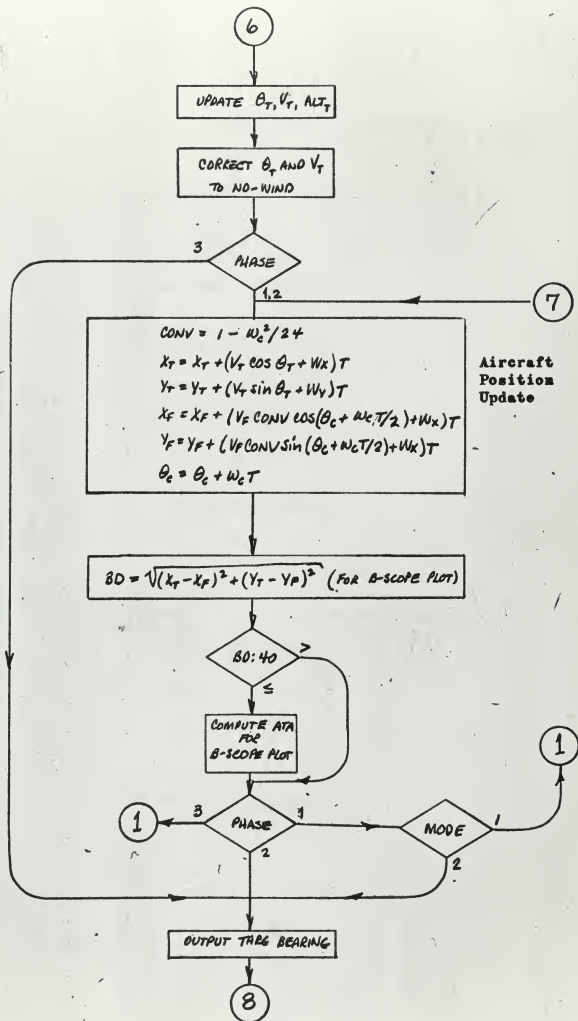 6
UPDATE θ_T, V_T, ALT_T
CORRECT θ_T AND V_T
TO NO-WIND
3
PHASE
1,2
7
CONV = 1 - ω_c²/24
X_T = X_T + (V_T COS θ_T + W_X) T
Y_T = Y_T + (V_T sin θ_T + W_Y) T
X_F = X_F + (V_F CONV COS(θ_c + ω_c T/2) + W_X) T
Y_F = Y_F + (V_F CONV sin (θ_c + ω_c T/2) + W_X) T
θ_c = θ_c + ω_c T
Aircraft
Position
Update
BD = √(X_T - X_F)² + (Y_T - Y_F)² (FOR B-SCOPE PLOT)
BD:40
>
≤
COMPUTE ATA
FOR
B-SCOPE PLOT
1
1
3
PHASE
1
MODE
1
2
2
OUTPUT TARG BEARING
8